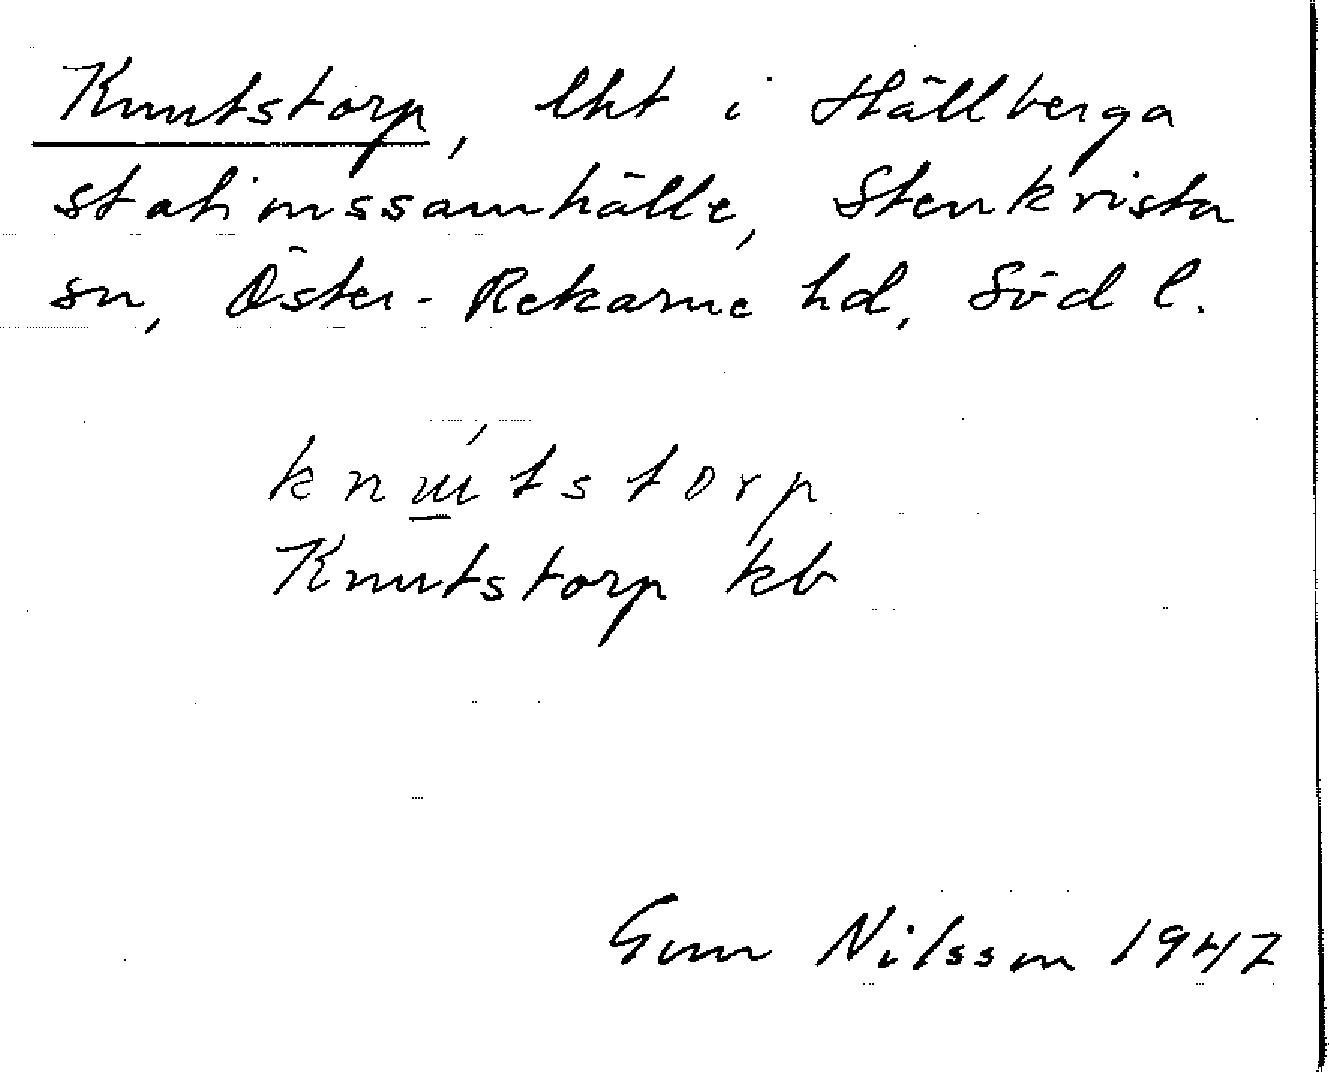 Knutstorp, lht i Hällberga
stationssamhälle, Stenkvista
sn, Öster-Rekarne hd, Söd l.
knú̲tstorp
Knutstorp kb
Gun Nilsson 1947